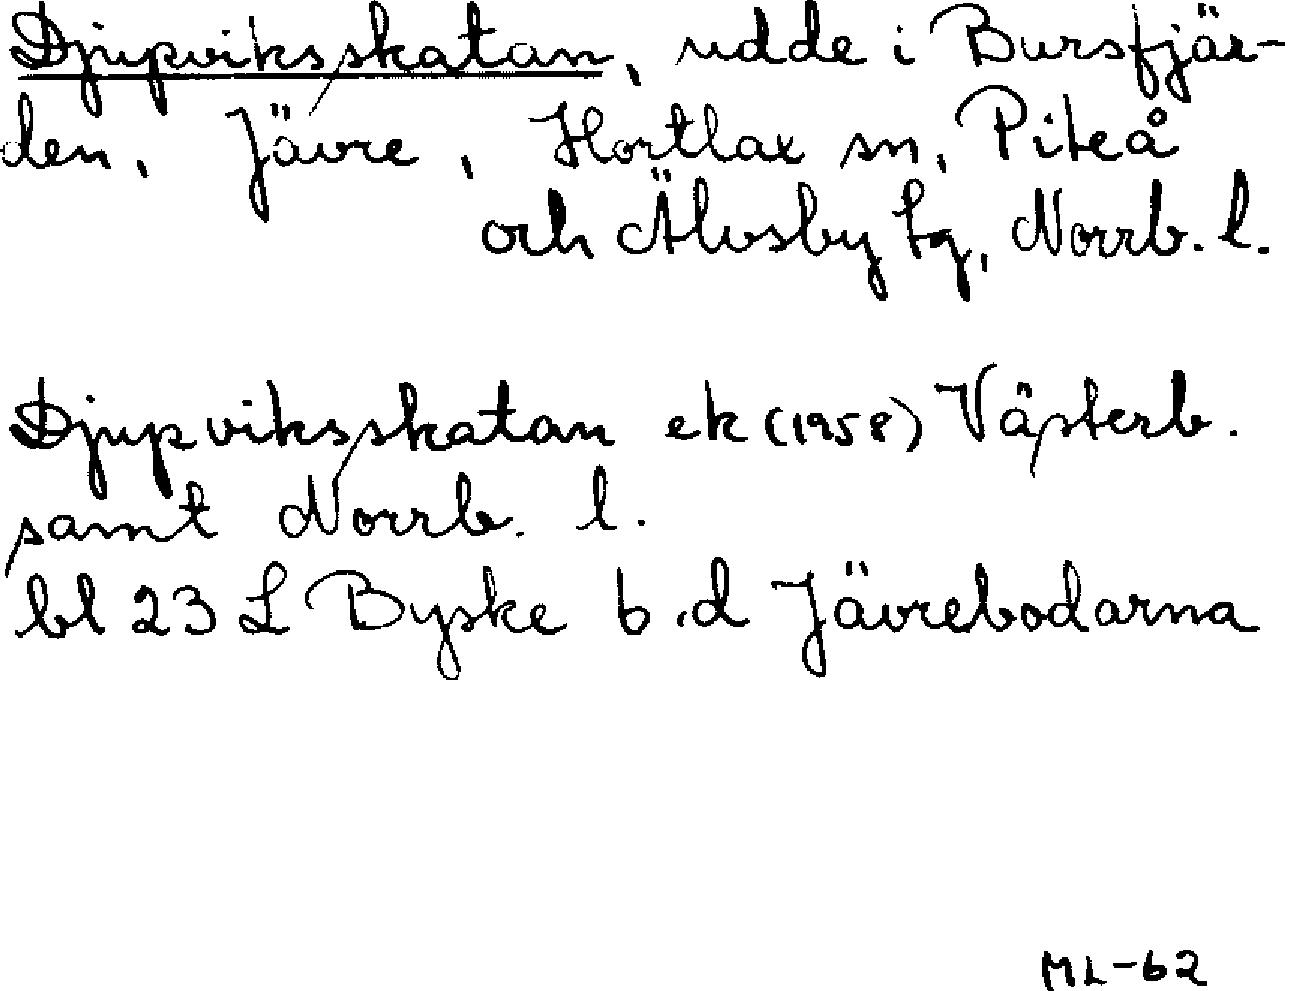 Djupviksskatan, udde i Bursfjär-
den, Jävre, Hortlax sn, Piteå
och Älvsby tg, Norrb. l.
Djupviksskatan ek (1958) Västerb.
samt Norrb. l.
bl 23 L Byske b.d Jävrebodarna
ML-62